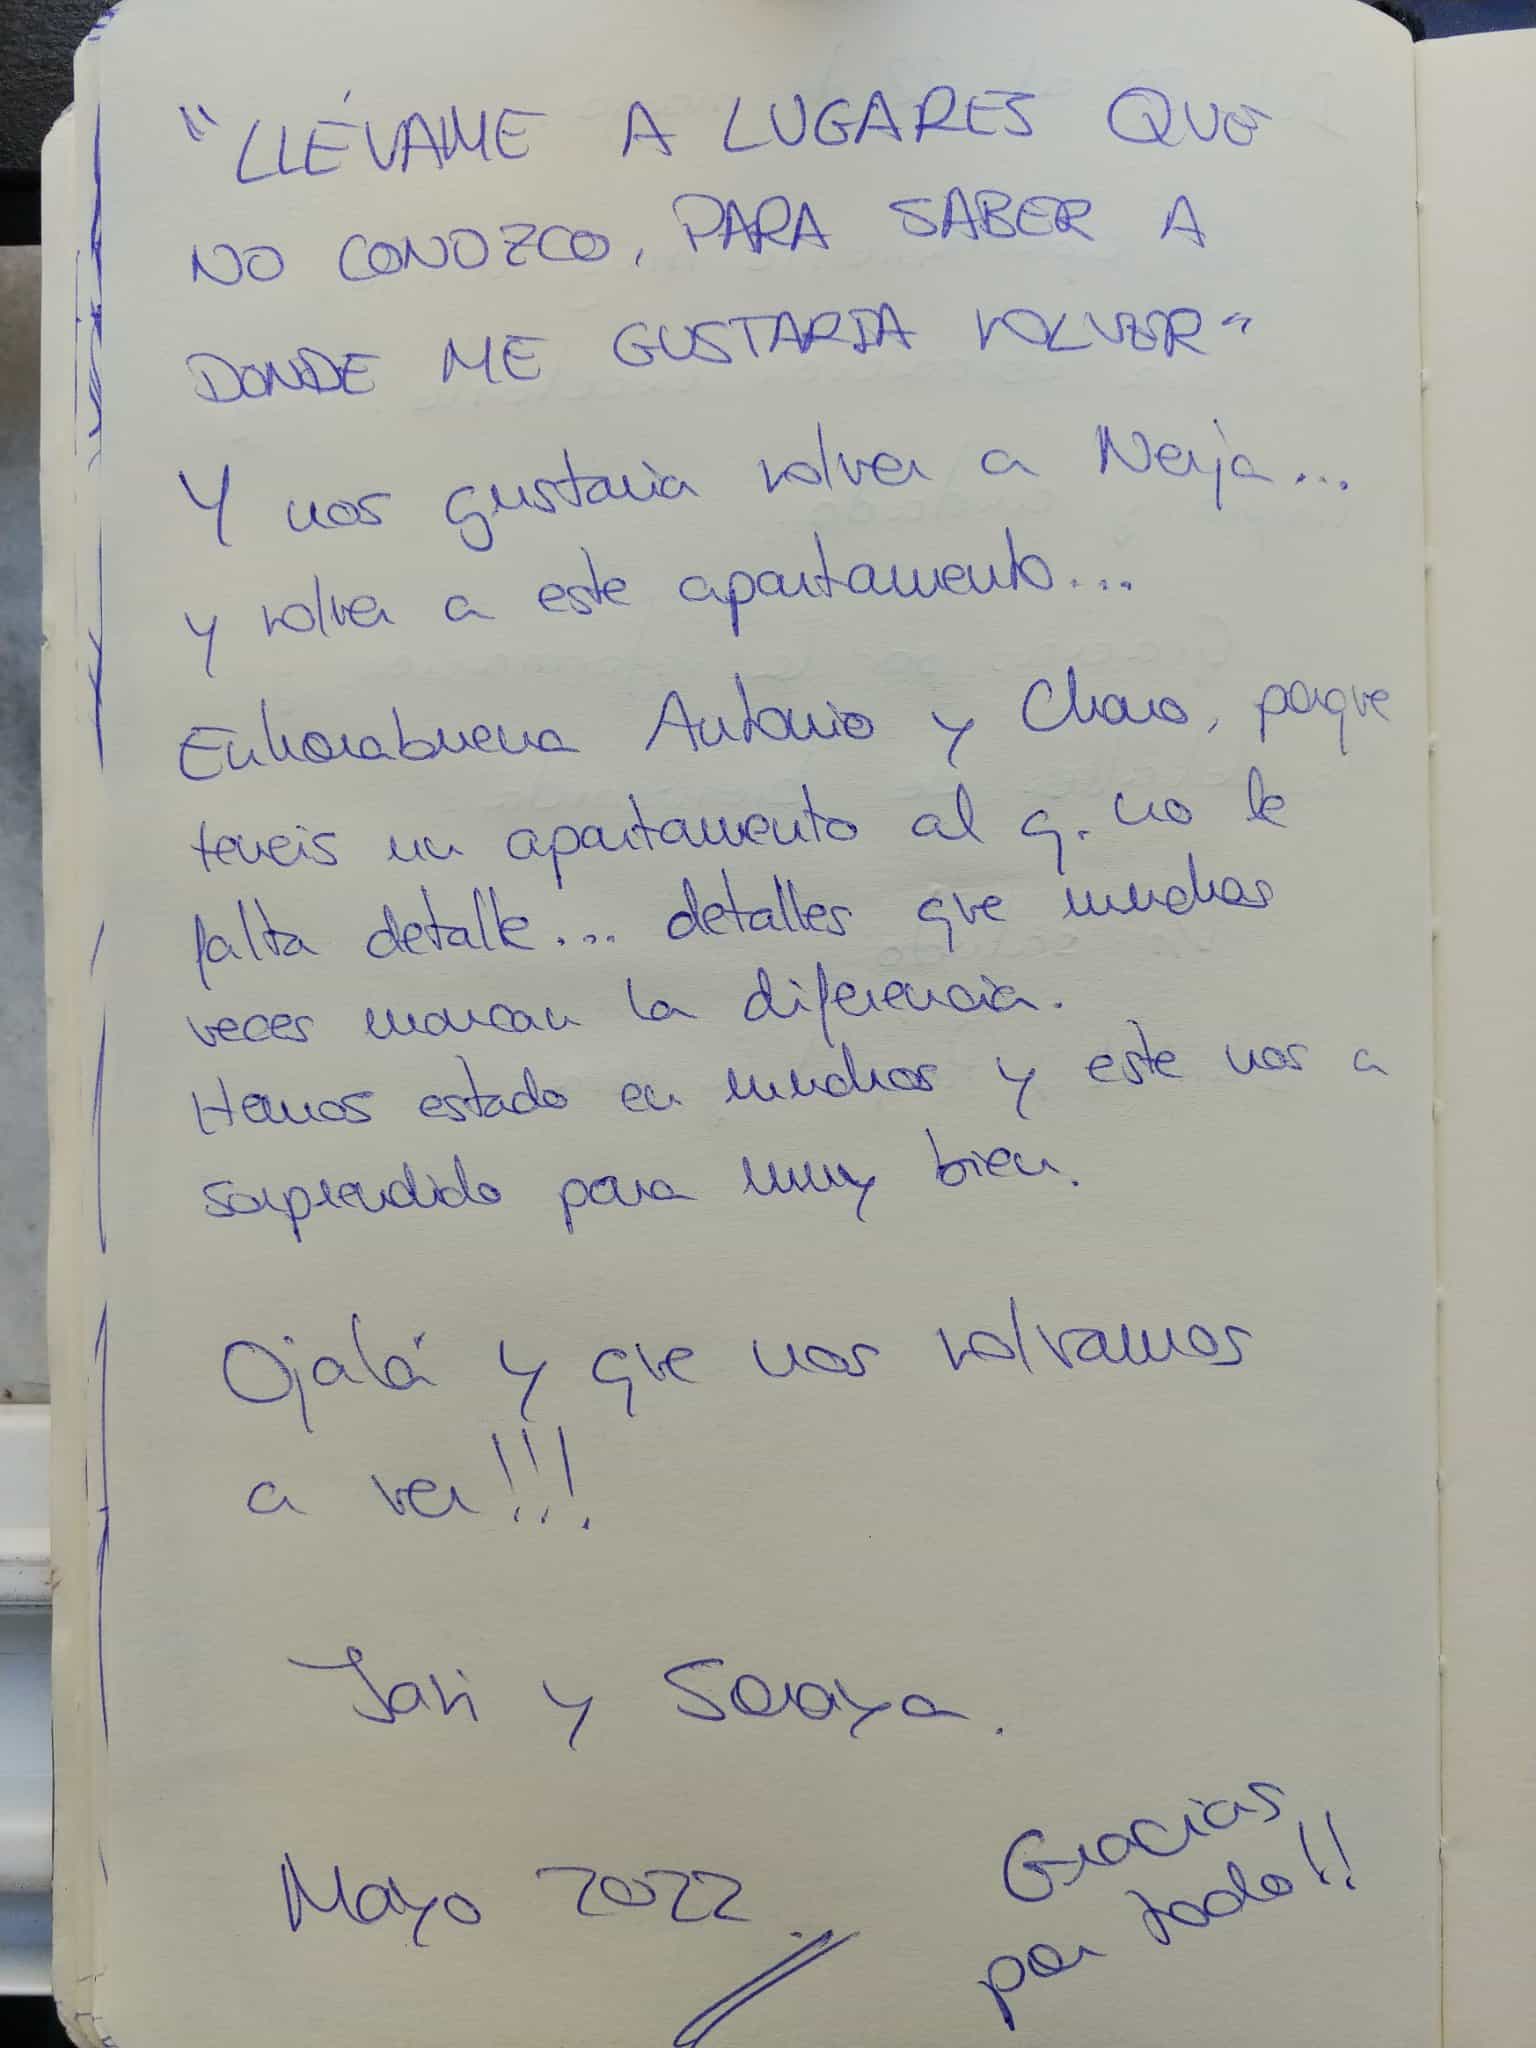 "LLÉVAME A LUGARES QUE
NO CONOZCO, PARA SABER A
DONDE ME GUSTARIA VOLVER"
Y nos gustaria volver a Nerja...
y volver a este apartamento...
Enhorabuena Antonio y Charo, porque
teneis un apartamento al q. no le
falta detalle... detalles que muchas
veces marcan la diferencia.
Hemos estado en muchos y este nos a
sorprendido para muy bien.
Ojalá y que nos volvamos
a ver!!!
Javi y Soraya.
Mayo 2022
Gracias
por todo!!